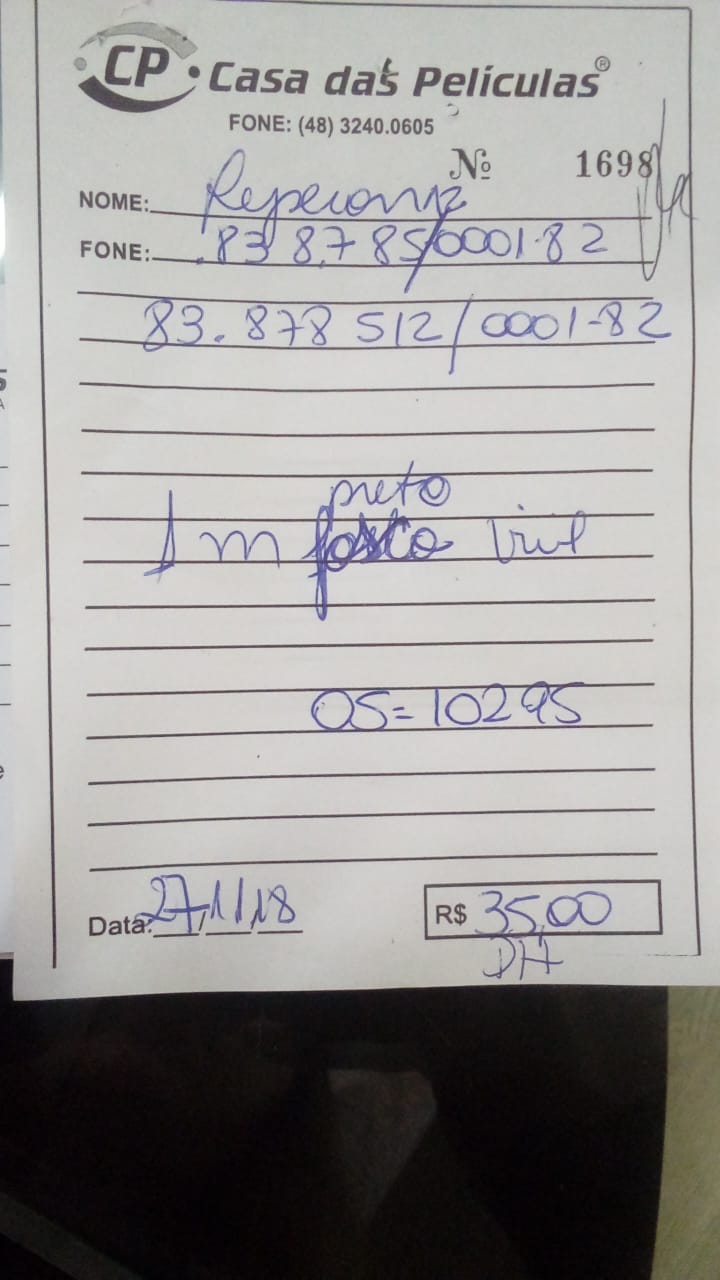 CP • Casa das Películas®
FONE: (48) 3240.0605
Nº 1698
NOME:
FONE: 83 8.785/0001-82
83.878 512/0001-82
preto
1 m fosco
OS=10295
Data: 27/11/18 R$ 35,00
DH